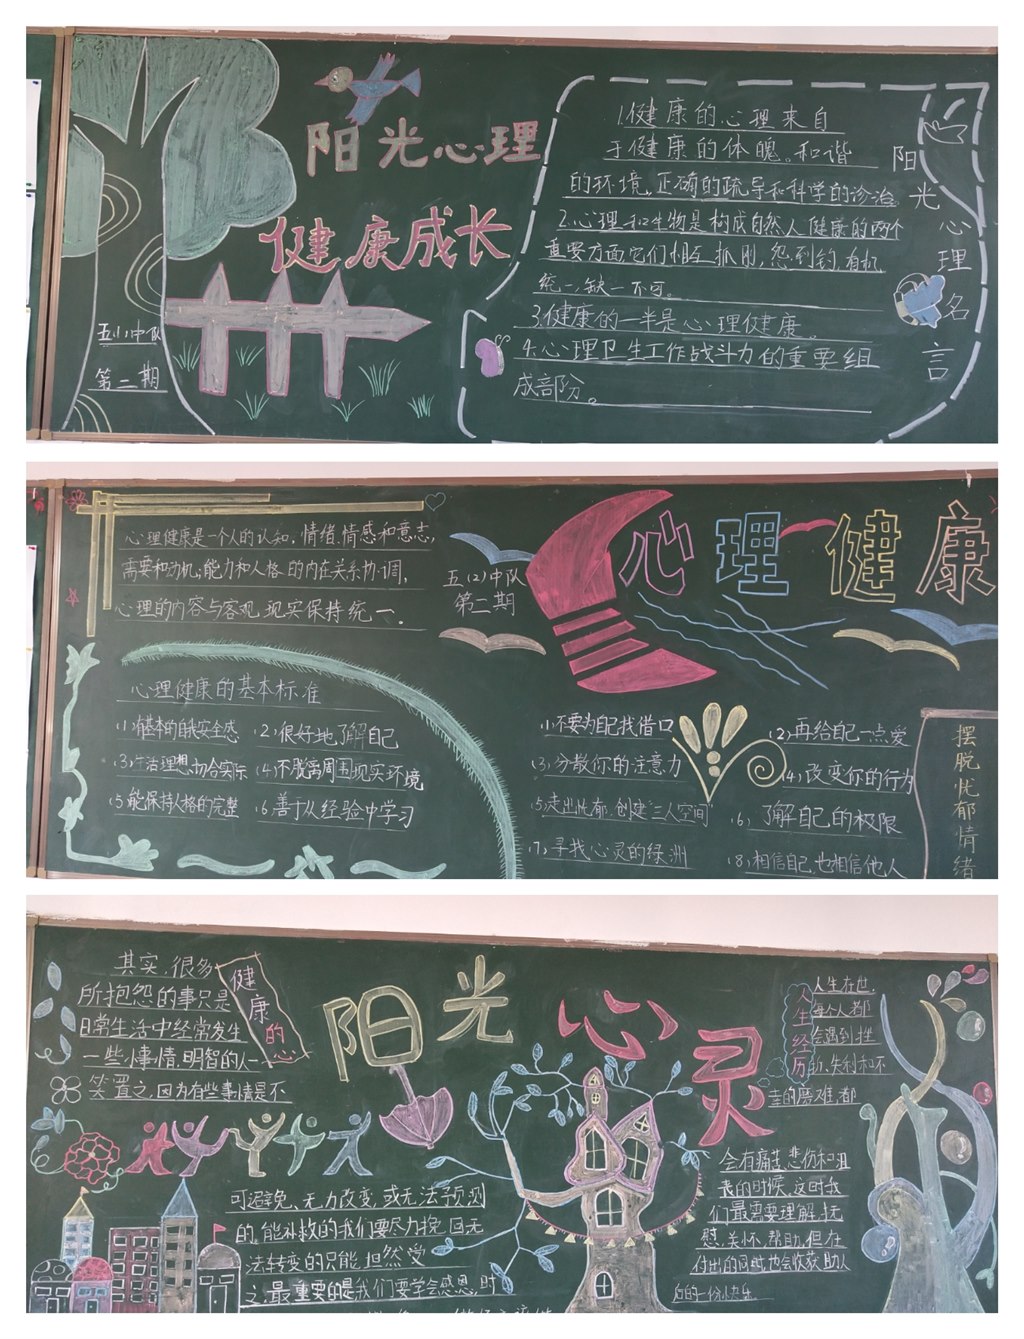 阳光心理
健康成长
五(1)中队
第二期
阳光心理名言
1.健康的心理来自
于健康的体魄。和谐
的环境,正确的疏导和科学的诊治
2.心理和生物是构成自然人健康的两个
重要方面它们相互抓刚,
统一,缺一不可。
3.健康的一半是心理健康。
4.心理卫生工作战斗力的重要组
成部份。
心理健康
五(2)中队
第二期
心理健康是一个人的认知,情绪、情感和意志,
需要和动机,能力和人格的内在关系协调,
心理的内容与客观现实保持统一。
心理健康的基本标准
(1)有基本的自我安全感 (2)很好地了解自己
(3)生活理想切合实际 (4)不脱离周围现实环境
(5)能保持人格的完整 (6)善于从经验中学习
摆脱忧郁情绪
(1)不要为自己找借口 (2)再给自己一点爱
(3)分散你的注意力 (4)改变你的行为
(5)走出忧郁,创建"三人空间" (6)了解自己的极限
(7)寻找心灵的绿洲 (8)相信自己,也相信他人
阳光心灵
健康的心
其实,很多
所抱怨的事只是
日常生活中经常发生
一些小事情,明智的人一
笑置之,因为有些事情是不
可避免、无力改变,或无法予预测
的,能补救的我们要尽力挽回,无
法转变的只能坦然受
之,最重要的是我们要学会感恩,时
人生经历
人生在世,
每个人都
会遇到挫
折、失利和不
幸的磨难,都
会有痛苦、悲伤和沮
丧的时候,这时我
们最需要理解、抚
慰、关怀、帮助,但在
付出的同时,也会收获助人
后的一份快乐。